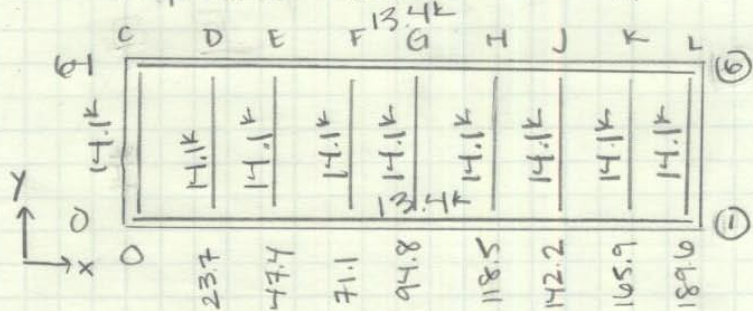 13.4k
C D E F G H J K L
61 6
14.1k 14.1k 14.1k 14.1k 14.1k 14.1k 14.1k 14.1k 14.1k
13.4k
Y
0 1
X
0 23.7 47.4 71.1 94.8 118.5 142.2 165.9 189.6